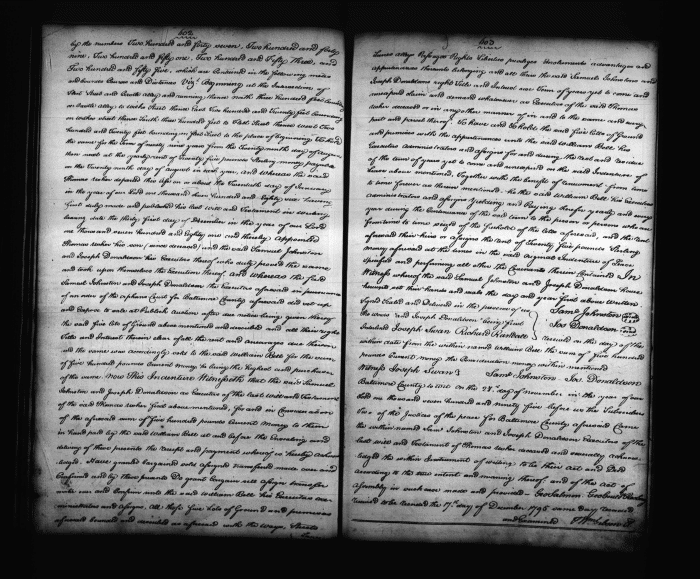 602
by the numbers Two hundred and forty seven, Two hundred and forty
nine, Two hundred and fifty one, Two hundred and Fifty Three, and
Two hundred and fifty Five, which are contained in the following metes
and bounds Courses and Distances Vizt. Beginning at the Intersection of
Street and alley and running thence north three hundred feet bounding
on alley to Street thence East Two hundred and Twenty feet bounding
on street thence South three hundred feet to Street thence West Two
hundred and Twenty feet bounding on Street to the place of beginning To hold
the same for the Term of ninety nine years from the Twenty ninth day of august
then next at the yearly rent of Twenty five pounds Sterling money payable
on the Twenty ninth day of august in each year, and whereas the said
Thomas departed this life on or about the Twentieth day of January
in the year of our Lord one thousand seven hundred and Eighty two having
first duly made and published his last will and Testament in writing
bearing date the thirty first day of December in the year of our Lord
one thousand seven hundred and Eighty one and thereby appointed
Thomas his son (since deceased) and the said Samuel Johnston
and Joseph Donaldson his Executors thereof who duly proved the same
and took upon themselves the Execution thereof and whereas the said
Samuel Johnston and Joseph Donaldson the Executors aforesaid in pursuance
of an order of the orphans Court for Baltimore County aforesaid did set up
and expose to sale at Publick auction after due notice being given thereof
the said five lots of Ground above mentioned and described and all their right
Title and Interest therein clear of all the rent and arrearages due thereon
and the same was accordingly sold to the said William Bell for the sum
of five hundred pounds Current money he being the highest and purchaser
of the same Now This Indenture Witnesseth that the said Samuel
Johnston and Joseph Donaldson as Executors of the Last Will and Testament
of the said Thomas first above mentioned, for and in Consideration
of the aforesaid sum of five hundred pounds Current money to them
in hand paid by the said William Bell at and before the Ensealing and
delivery of these presents the receipt and payment whereof is hereby acknow
ledged Have granted bargained sold assigned transfered made over and
Confirmed and by these presents Do grant bargain sell assign transfer
make over and Confirm unto the said William Bell his Executors ad
ministrators and assigns All those five lots of Ground and premises
aforesaid bounded and described as aforesaid with the ways streets
603
Lanes alleys Passages Rights Liberties privileges Emoluments advantages and
appurtenances thereunto belonging and all the said Samuel Johnston and
Joseph Donaldson right Title and Interest and Term of years yet to come and
unexpired claim and demand whatsoever as Executors of the said Thomas
deceased or in any other manner of in and to the same and every
part and parcel thereof to have and to hold the said five lots of Ground
and premises with the appurtenances unto the said William Bell his
Executors administrators and assigns for and during the rest and residue
of the term of years yet to come and unexpired on the said Indenture of
Lease above mentioned, Together with the benefit of renewment from time
to time forever as therein mentioned. He the said William Bell his Executors
administrators and assigns Yielding and Paying therefor yearly and every
year during the Continuance of the said term to the person or persons who are
from time to time seized of the freehold of the lots aforesaid, and the rest
aforesaid their heirs or assigns the rent of Twenty five pounds Sterling
money aforesaid at the times in the said original Indenture of Lease
specified and performing all other the Covenants therein contained In
Witness whereof the said Samuel Johnston and Joseph Donaldson have
hereunto set their hands and seals the day and year first above written.
Signed Sealed and Delivered in the presence of us } Saml Johnston
the words "and Joseph Donaldson" being first } Jos Donaldson
Interlined Joseph Swan Richard } Received on the day of the
within date from the within named William Bell the sum of five hundred
pounds Current money the Consideration money within mentioned
Witness Joseph Swan } Saml Johnston Jos Donaldson
Baltimore County to wit On the 28 day of november in the year of our
Lord one thousand seven hundred and ninety five before us the Subscribers
two of the Justices of the peace for Baltimore County aforesaid Came
the within named Saml Johnston and Joseph Donaldson Executors of the
last will and Testament of Thomas deceased and severally acknow
ledged the within Instrument of writing to be their Act and Deed
according to the true intent and meaning thereof and of the Act of
assembly in such case made and provided — Geo Salmon
received to be recorded the 17th day of December 1795 same day recorded
and Examined